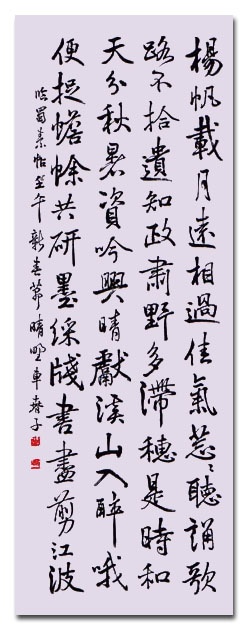 楊帆載月遠相過佳氣葱々聽誦歌
路不拾遺知政肅野多滯穗是時和
天分秋暑資吟興晴獻溪山入醉哦
便捉蟾蜍共研墨綵牋書盡剪江波
臨蜀素帖 午 春 晴野車春子